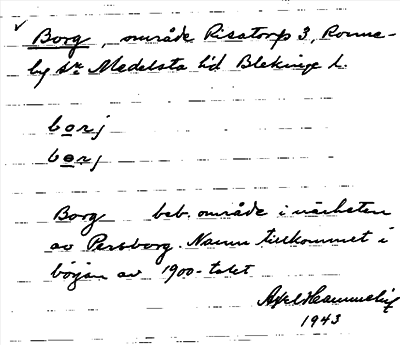 ✓ Borg, område Risatorp 3, Ronne-
by sn Medelsta hd Blekinge l.
borj
borj
Borg beb. område i närheten
av Persborg. Namn tillkommet i
början av 1900-talet
Axel
1943